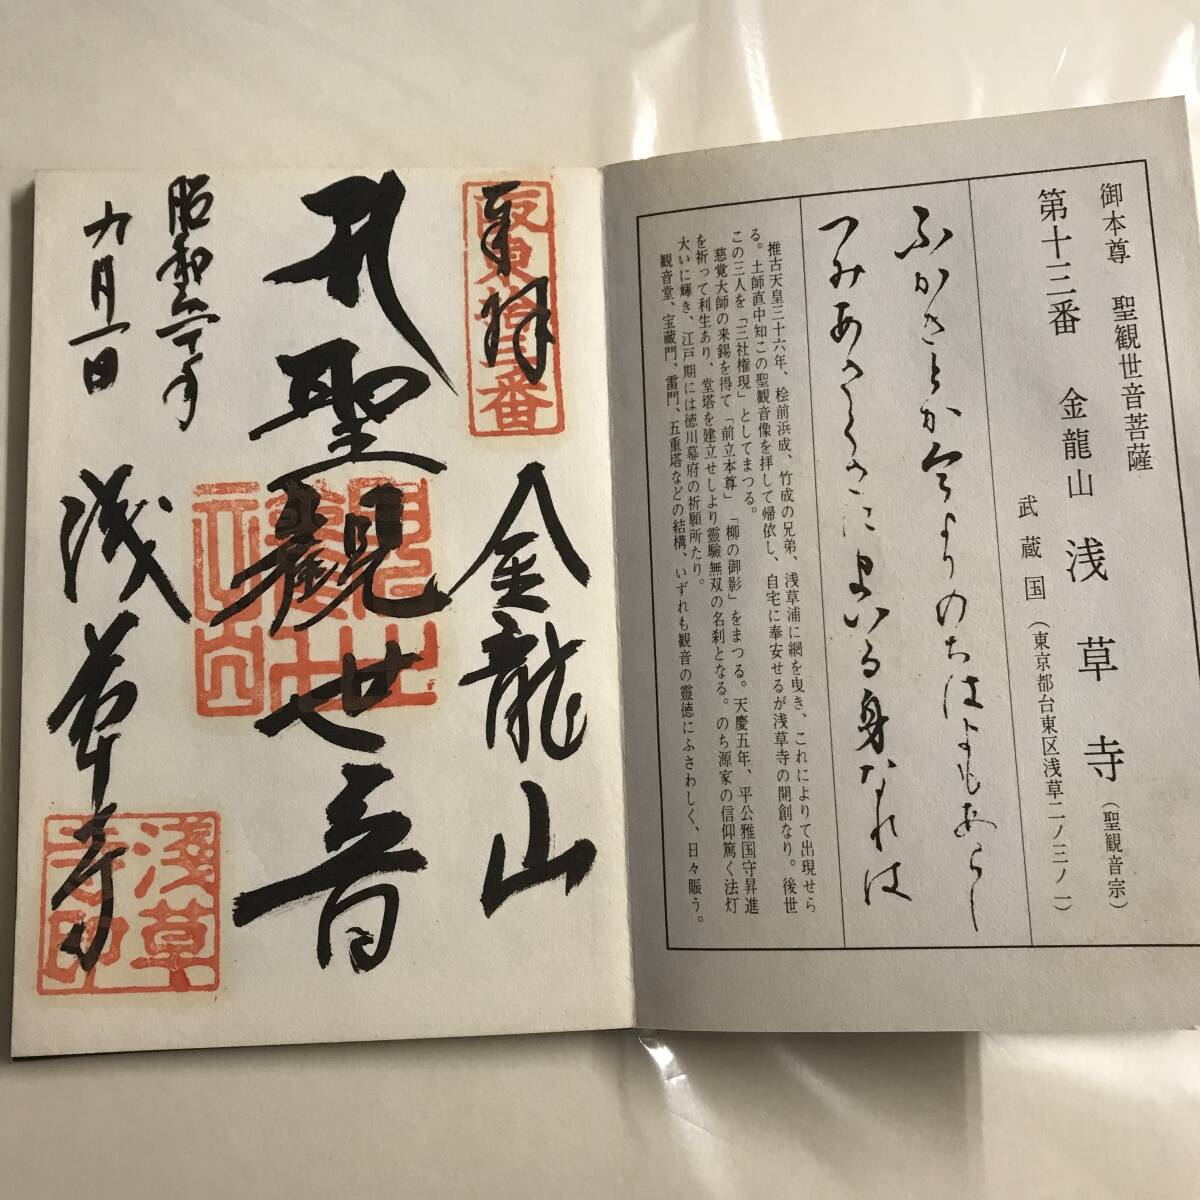 御本尊 聖観世音菩薩
第十三番 金龍山 浅草寺 (聖観音宗)
武蔵国 (東京都台東区浅草二ノ三ノ一)
ふかきとか今よりのちはよもあらし
つみあさくさにまいる身なれは
推古天皇三十六年、桧前浜成、竹成の兄弟、浅草浦に網を曳き、これによりて出現せら
る。土師直中知この聖観音像を拝して帰依し、自宅に奉安せるが浅草寺の開創なり。後世
この三人を「三社権現」としてまつる。
慈覚大師の来錫を得て「前立本尊」「柳の御影」をまつる。天慶五年、平公雅国守昇進
を祈って利生あり、堂塔を建立せしより靈驗無双の名刹となる。のち源家の信仰篤く法灯
大いに輝き、江戸期には徳川幕府の祈願所たり。
観音堂、宝蔵門、雷門、五重塔などの結構、いずれも観音の靈徳にふさわしく、日々賑う。
奉拝
坂東拾三番
金龍山
聖観世音
昭和六十年
九月一日
浅草寺
淺草寺印